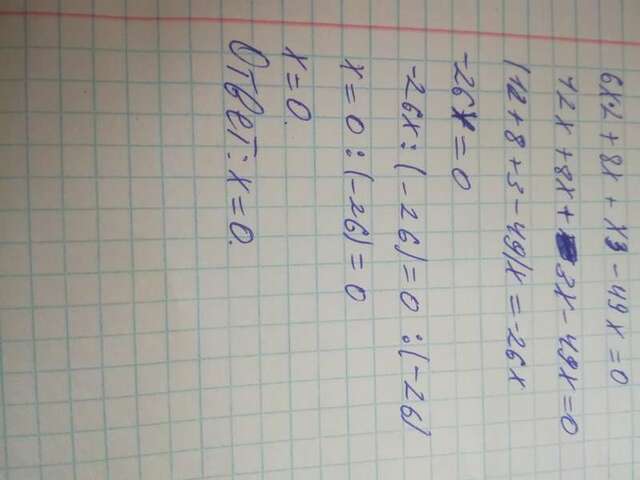 6x·2 + 8x + x3 - 49x = 0
12x + 8x + 3x - 49x = 0
(12 + 8 + 3 - 49)x = -26x
-26x = 0
-26x : (-26) = 0 : (-26)
x = 0 : (-26) = 0
x = 0.
Ответ: x = 0.